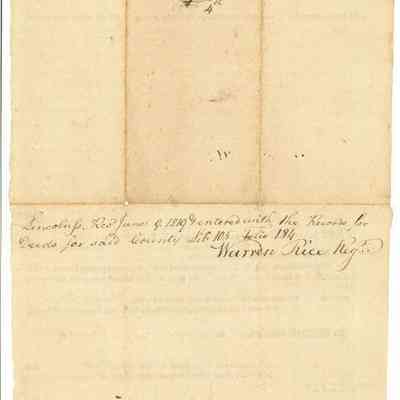 4
Lincoln ss. Recd June 9. 1819 & entered with the Records for
Deeds for said County Lib 105 folio 184
Warren Rice Regr